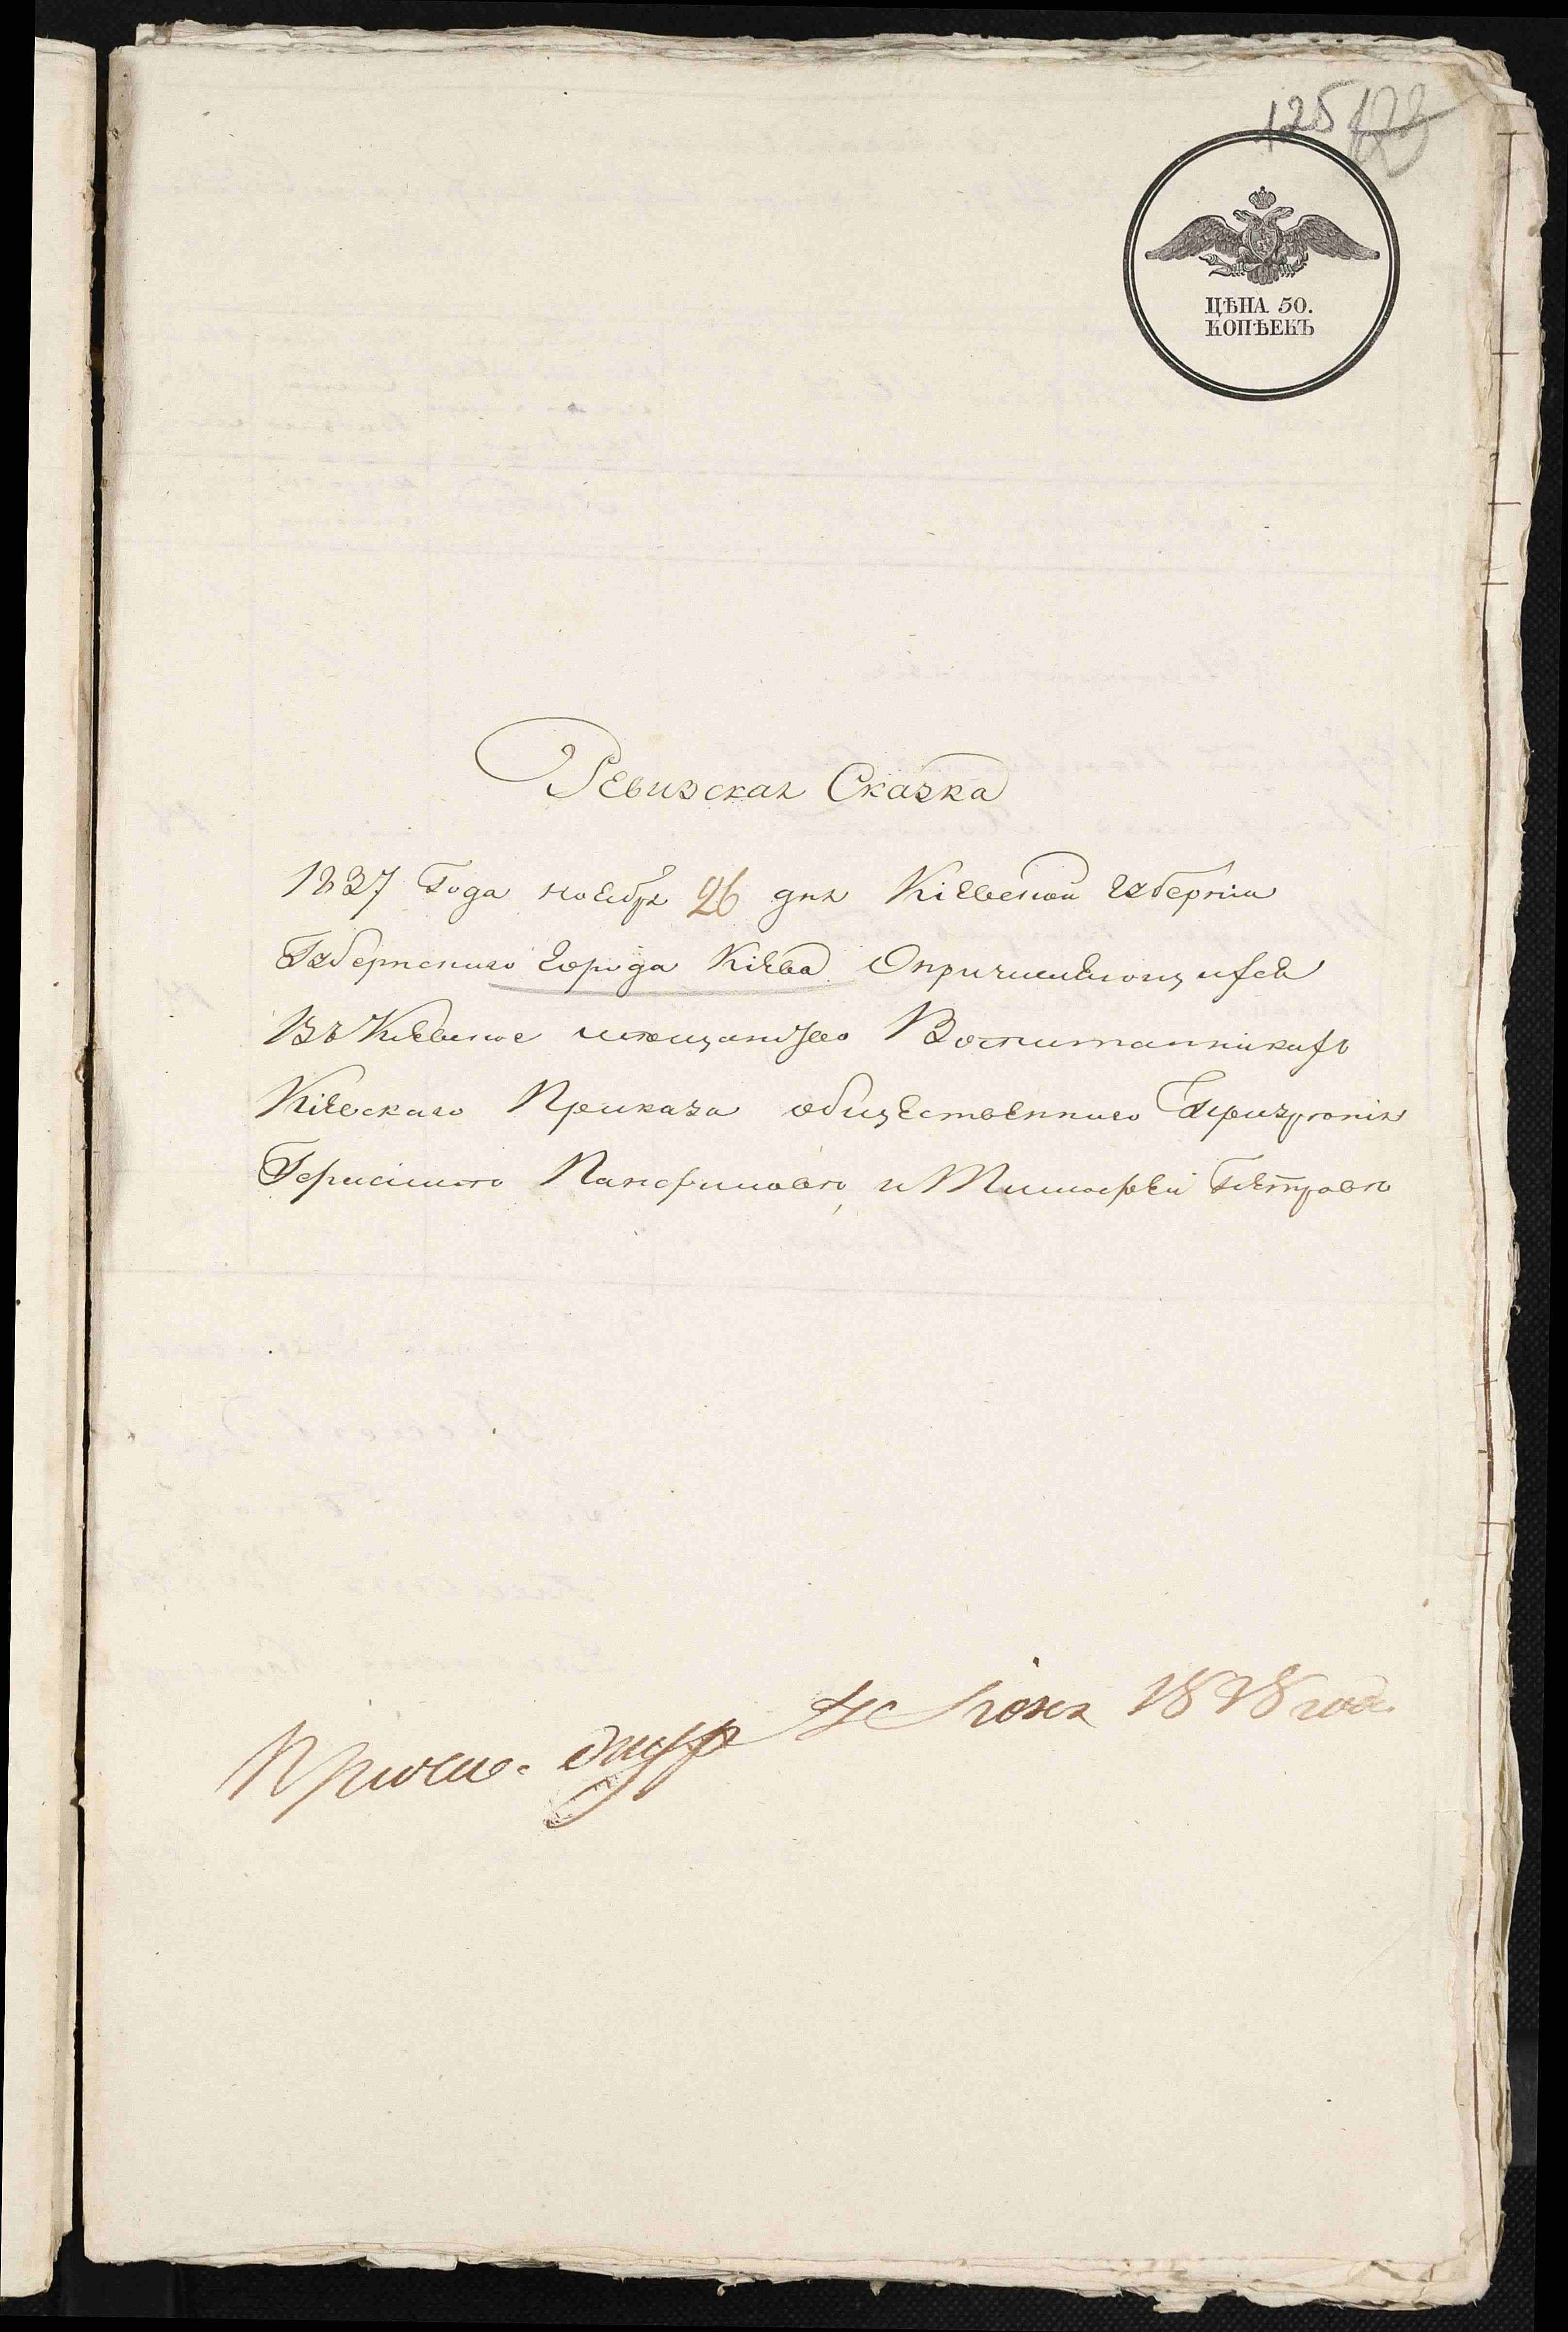 125
ЦѢНА 50.
КОПѢЕКЪ
Ревизская Сказка
1837 Года ноября 26 дня Кіевской губерніи
Губернскаго города Кіева О причисляющихся
Въ Кіевское мещанство Воспитанниках
Кіевскаго Приказа общественнаго Призрѣнія
Панфиловѣ, и Тимофѣи Петровѣ
1838 года